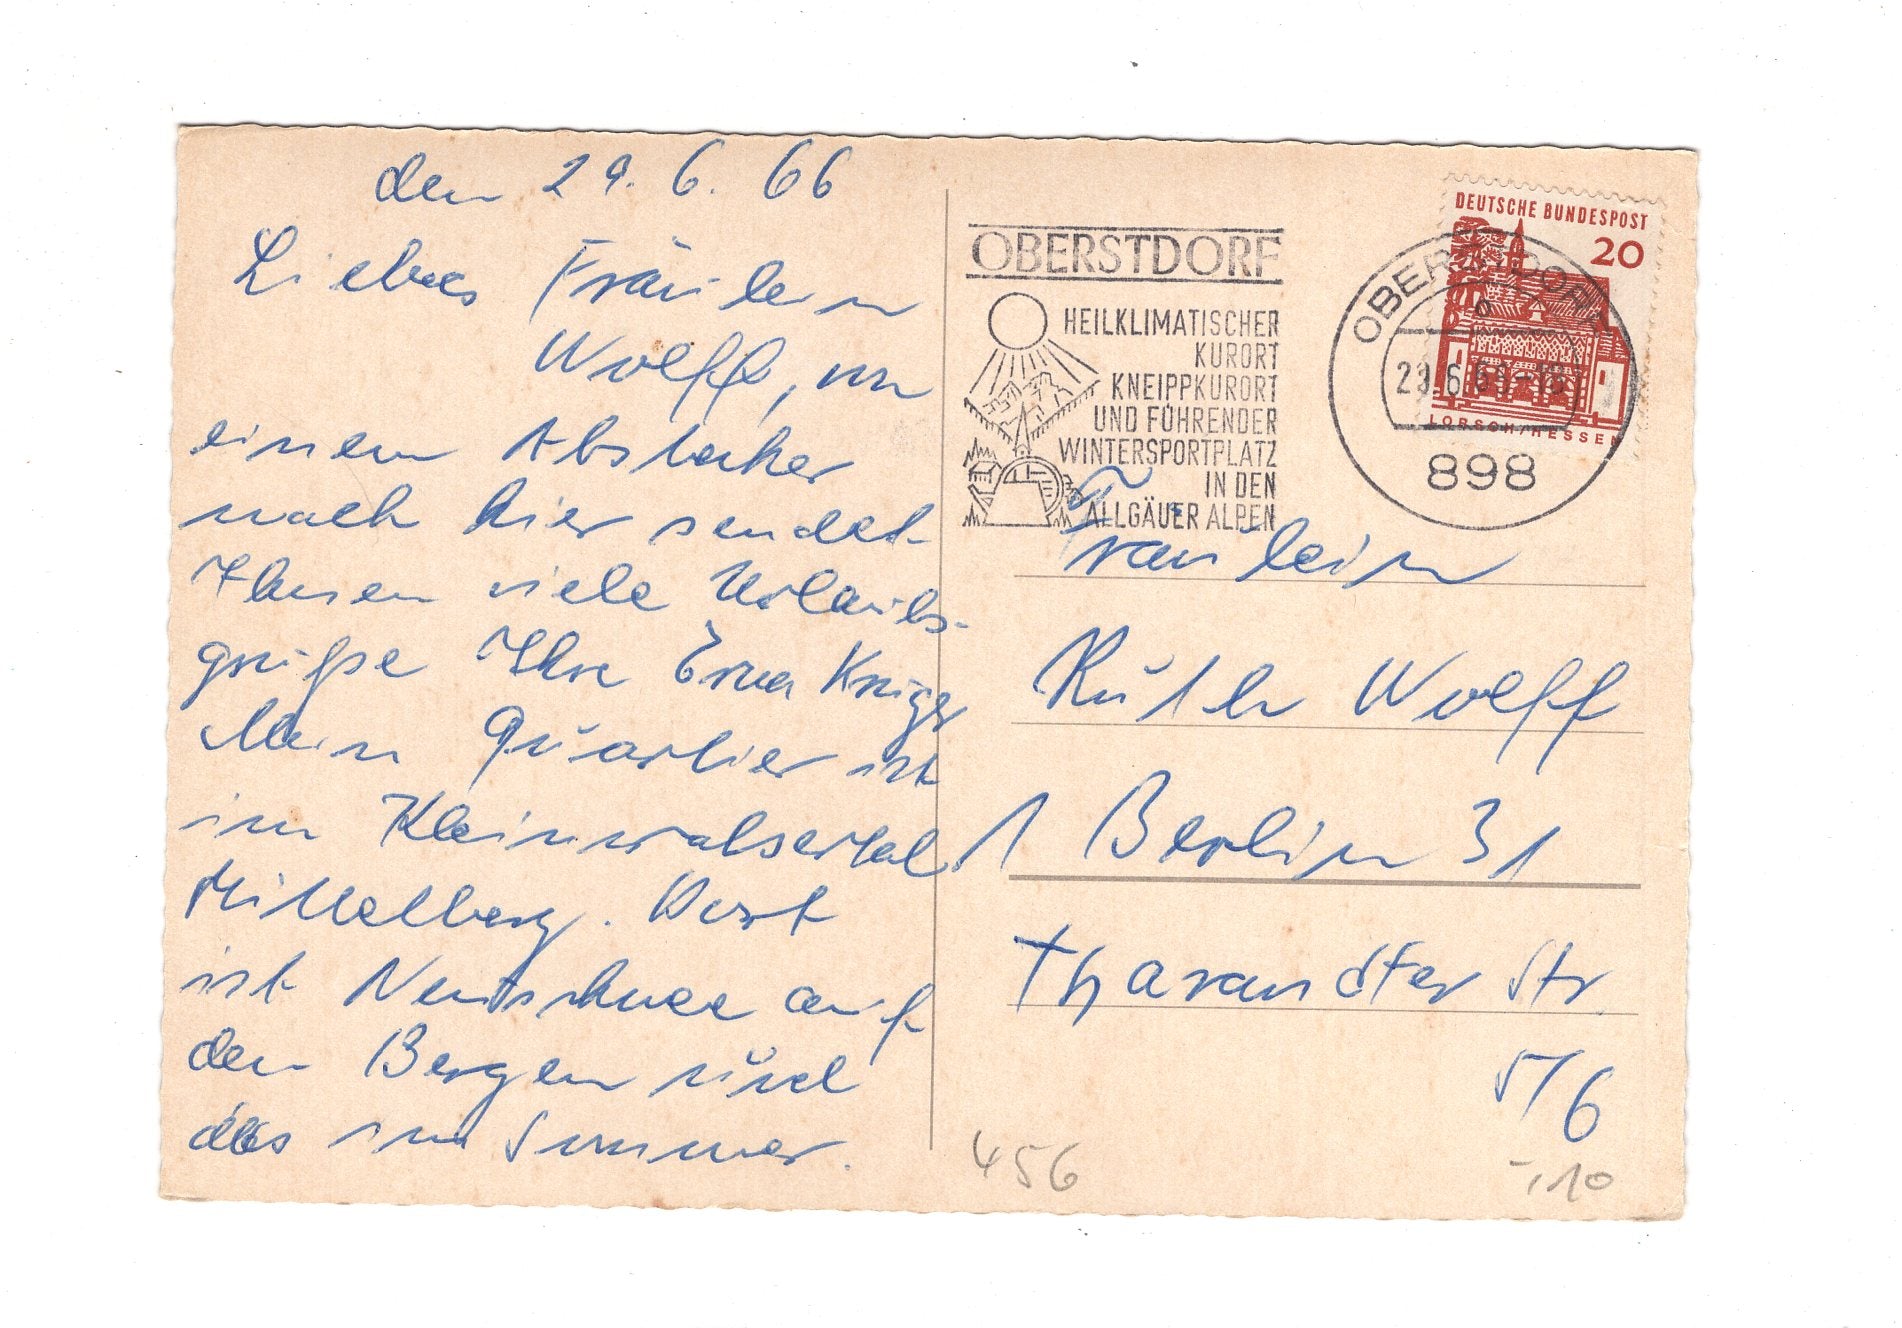 den 29. 6. 66
Liebes Fräulein
Wolff, von
einem Abstecher
nach hier sendet
Ihnen viele Urlaubs-
grüße Ihre Erna Krüger
Mein Quartier ist
im Kleinwalsertal
Mittelberg. Dort
ist Neuschnee auf
den Bergen und
das im Sommer.
OBERSTDORF
HEILKLIMATISCHER
KURORT
KNEIPPKURORT
UND FÜHRENDER
WINTERSPORTPLATZ
IN DEN
ALLGÄUER ALPEN
DEUTSCHE BUNDESPOST
20
LORSCH/HESSEN
OBERSTDORF
29.6.66-15
898
Fräulein
Ruth Wolff
1 Berlin 31
Tharandter Str
5/6
456
-,10